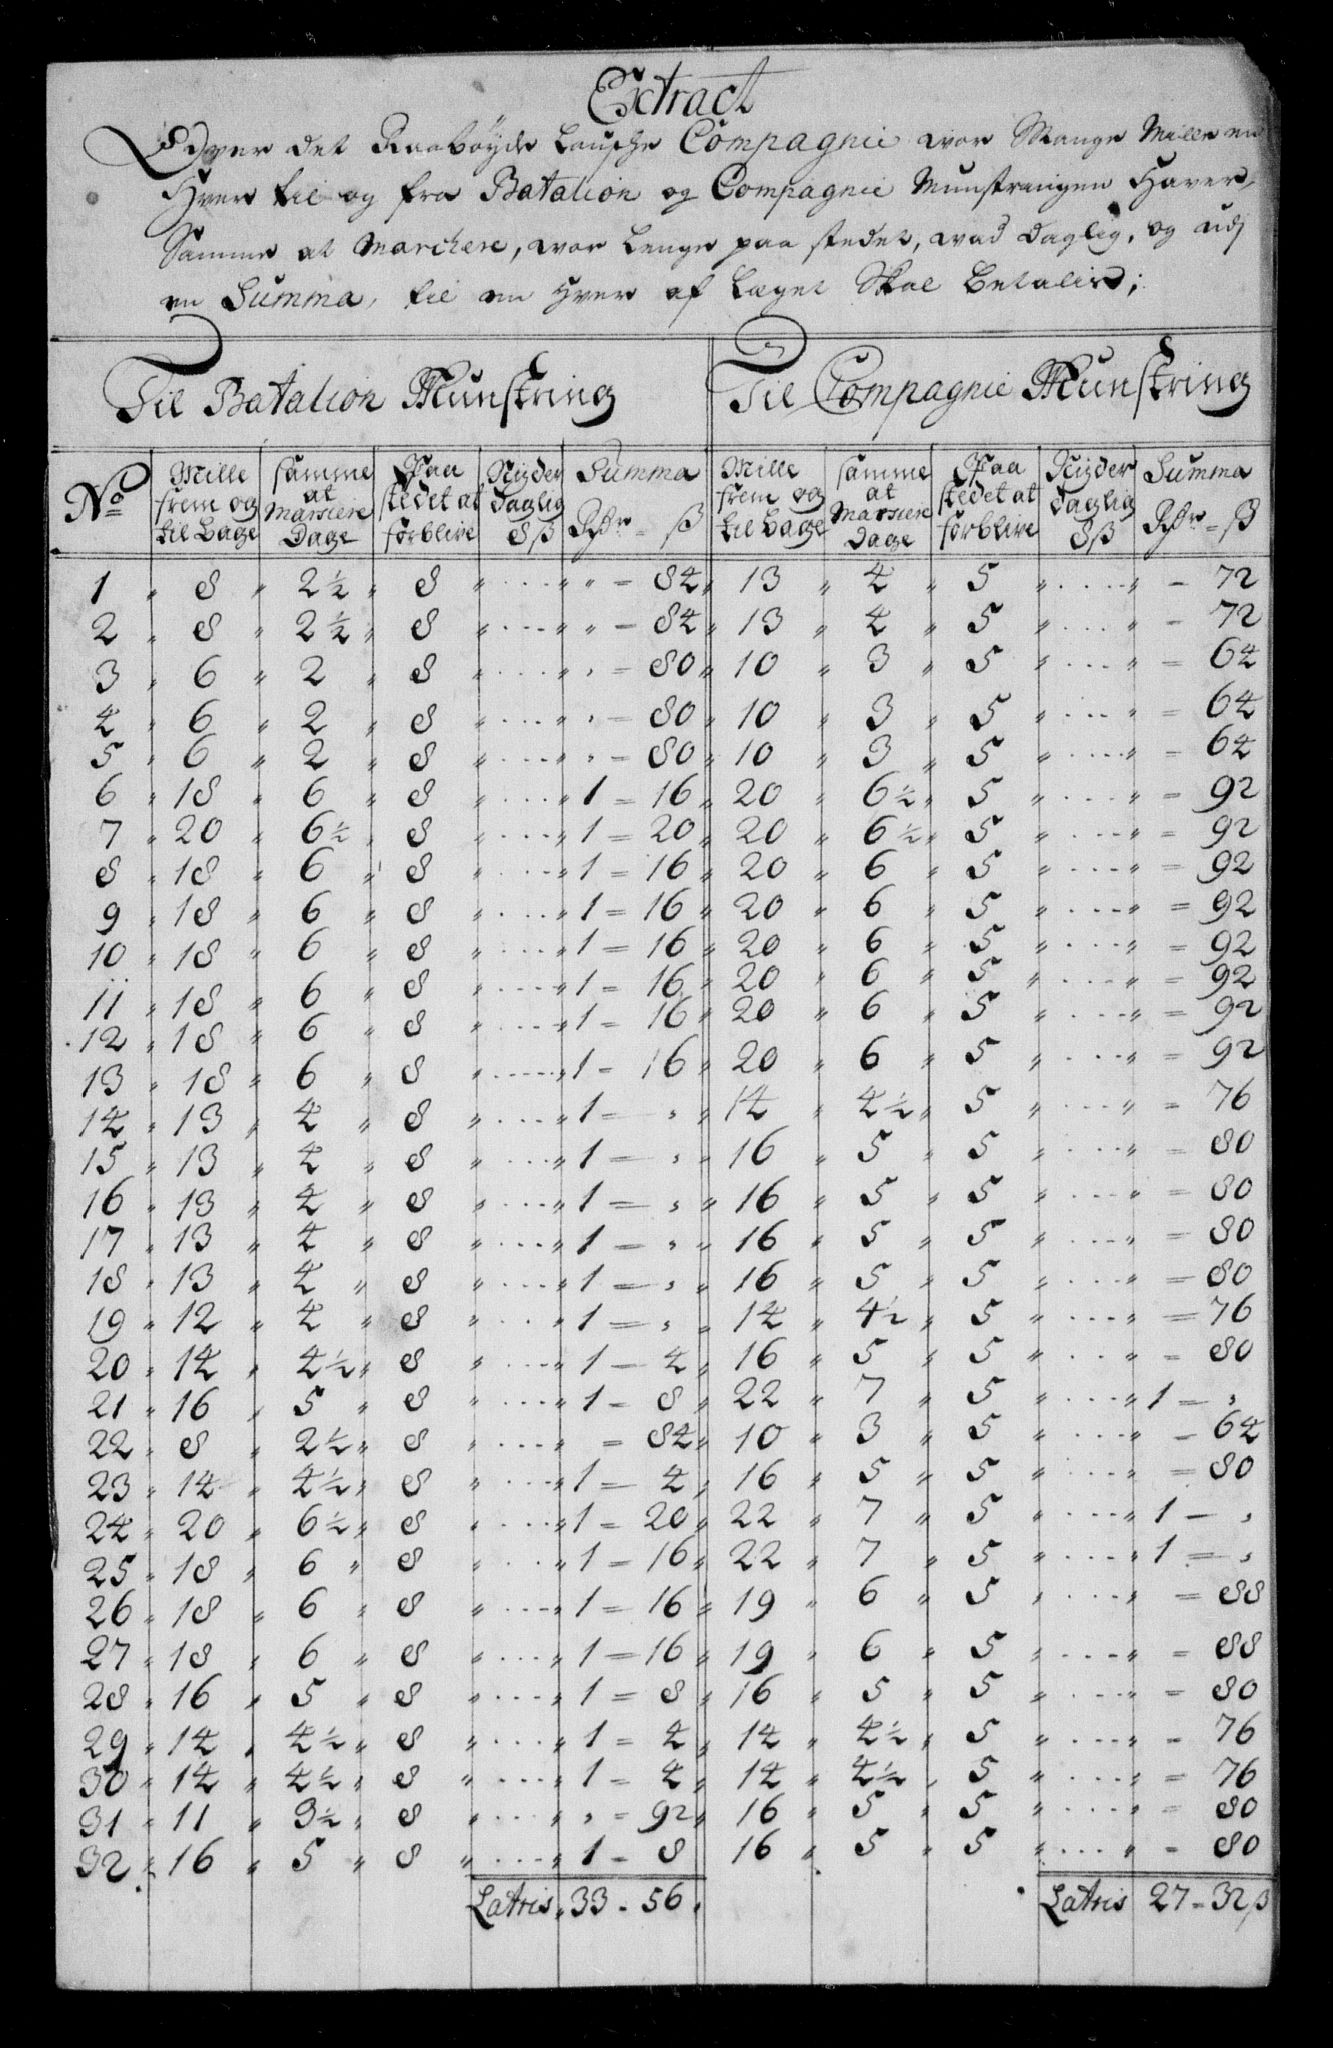 Extract
Over det Raabøyde Lauche Compagnie wor Mange Mille en
Hver til og fra Batalion og Compagnie Munstringen Haver
Samme at Marchere, wor Lenge paa stedet, wad Daglig, og udj
en Summa, til en Hver af Læget Skal Betalis;
Til Batalion Munstring Til Compagnie Munstring
No Mille frem og til bage samme at Marsiere Dage Paa stedet at forblive Nyder Daglig 8 ß Summa Rdr - ß Mille frem og til bage samme at Marsiere Dage Paa stedet at forblive Nyder Daglig 8 ß Summa Rdr - ß
1 " 8 " 2½ " 8 " .... " " - 84 " 13 " 4 " 5 " .... " - 72
2 " 8 " 2½ " 8 " .... " " - 84 " 13 " 4 " 5 " .... " - 72
3 " 6 " 2 " 8 " .... " " - 80 " 10 " 3 " 5 " .... " = 64
4 " 6 " 2 " 8 " .... " " - 80 " 10 " 3 " 5 " .... " = 64
5 " 6 " 2 " 8 " .... " " - 80 " 10 " 3 " 5 " .... " = 64
6 " 18 " 6 " 8 " .... " 1 = 16 " 20 " 6½ " 5 " .... " = 92
7 " 20 " 6½ " 8 " .... " 1 = 20 " 20 " 6½ " 5 " .... " = 92
8 " 18 " 6 " 8 " .... " 1 = 16 " 20 " 6 " 5 " .... " = 92
9 " 18 " 6 " 8 " .... " 1 = 16 " 20 " 6 " 5 " .... " = 92
10 " 18 " 6 " 8 " .... " 1 = 16 " 20 " 6 " 5 " .... " = 92
11 " 18 " 6 " 8 " .... " 1 = 16 " 20 " 6 " 5 " .... " = 92
12 " 18 " 6 " 8 " .... " 1 = 16 " 20 " 6 " 5 " .... " = 92
13 " 18 " 6 " 8 " .... " 1 - 16 " 20 " 6 " 5 " .... " = 92
14 " 13 " 4 " 8 " .... " 1 - " " 14 " 4½ " 5 " .... " = 76
15 " 13 " 4 " 8 " .... " 1 = " " 16 " 5 " 5 " .... " = 80
16 " 13 " 4 " 8 " .... " 1 = " " 16 " 5 " 5 " .... " = 80
17 " 13 " 4 " 8 " .... " 1 = " " 16 " 5 " 5 " .... " = 80
18 " 13 " 4 " 8 " .... " 1 = " " 16 " 5 " 5 " .... " = 80
19 " 12 " 4 " 8 " .... " 1 = " " 14 " 4½ " 5 " .... " = 76
20 " 14 " 4½ " 8 " .... " 1 - 4 " 16 " 5 " 5 " .... " = 80
21 " 16 " 5 " 8 " .... " 1 - 8 " 22 " 7 " 5 " .... " 1 = "
22 " 8 " 2½ " 8 " .... " = 84 " 10 " 3 " 5 " .... " - 64
23 " 14 " 4½ " 8 " .... " 1 = 4 " 16 " 5 " 5 " .... " = 80
24 " 20 " 6½ " 8 " .... " 1 = 20 " 22 " 7 " 5 " .... " 1 - "
25 " 18 " 6 " 8 " .... " 1 = 16 " 22 " 7 " 5 " .... " 1 = "
26 " 18 " 6 " 8 " .... " 1 = 16 " 19 " 6 " 5 " .... = 88
27 " 18 " 6 " 8 " .... " 1 = 16 " 19 " 6 " 5 " .... " = 88
28 " 16 " 5 " 8 " .... " 1 = 8 " 16 " 5 " 5 " .... " = 80
29 " 14 " 4½ " 8 " .... " 1 = 4 " 14 " 4½ " 5 " .... " = 76
30 " 14 " 4½ " 8 " .... " 1 = 4 " 14 " 4½ " 5 " .... " = 76
31 " 11 " 3½ " 8 " .... " " = 92 " 16 " 5 " 5 " .... " = 80
32 " 16 " 5 " 8 " .... " 1 = 8 16 " 5 " 5 " .... " - 80
Latris " 33 - 56 . Latris 27 - 32 ß